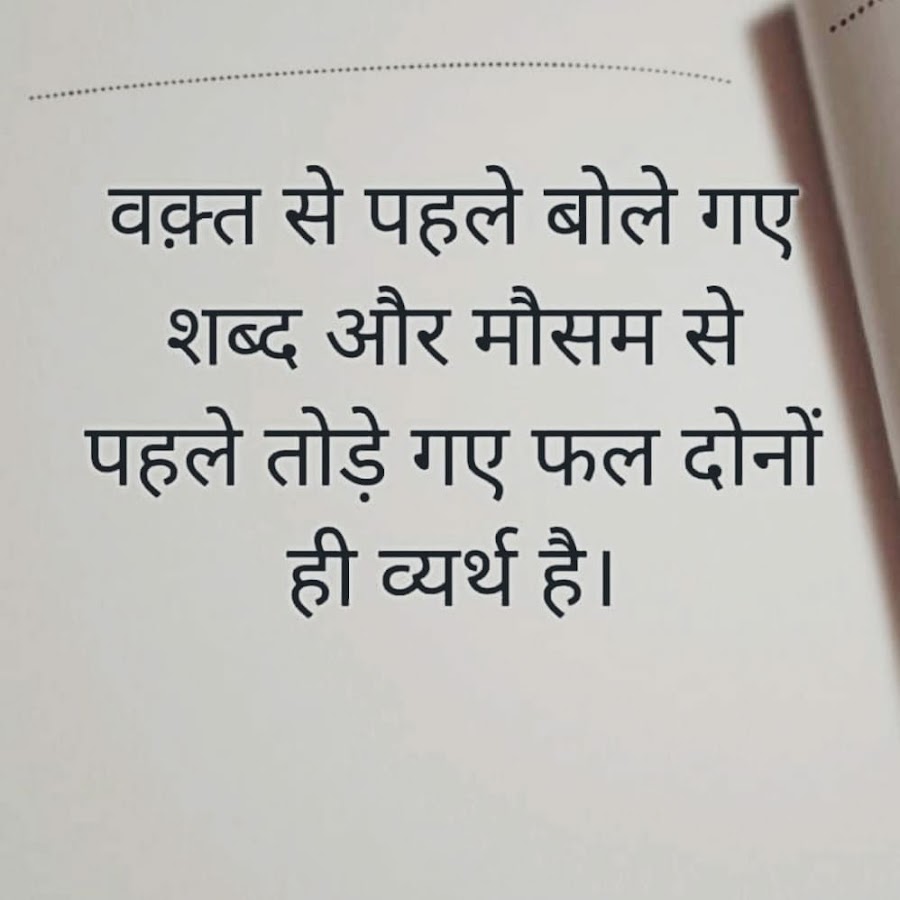 वक़्त से पहले बोले गए
शब्द और मौसम से
पहले तोड़े गए फल दोनों
ही व्यर्थ है।